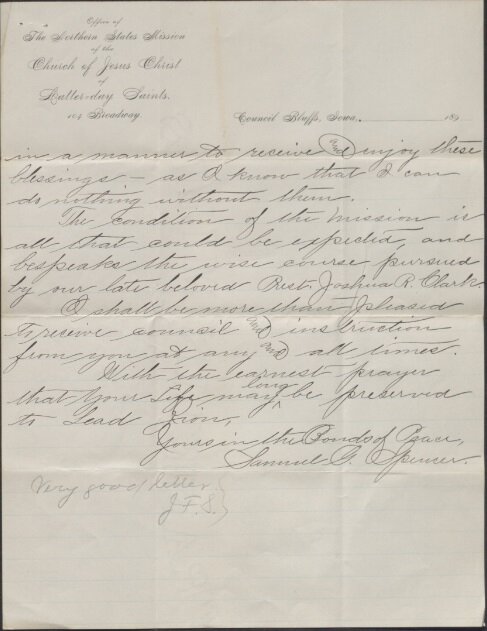 Office of
The Northern States Mission
of the
Church of Jesus Christ
of
Latter-day Saints.
104 Broadway.
Council Bluffs, Iowa, 189
in a manner to receive and enjoy these
blessings – as I know that I can
do nothing without them.
The condition of the mission is
all that could be expected, and
bespeaks the wise course pursued
by our late beloved Prest. Joshua R. Clark.
I shall be more than pleased
to receive council and instruction
from you at any and all times.
With the earnest prayer
that your life may long be preserved
to lead Zion,
Yours in the Bonds of Peace,
Samuel G. Spencer.
Very good letter
J. F. S.